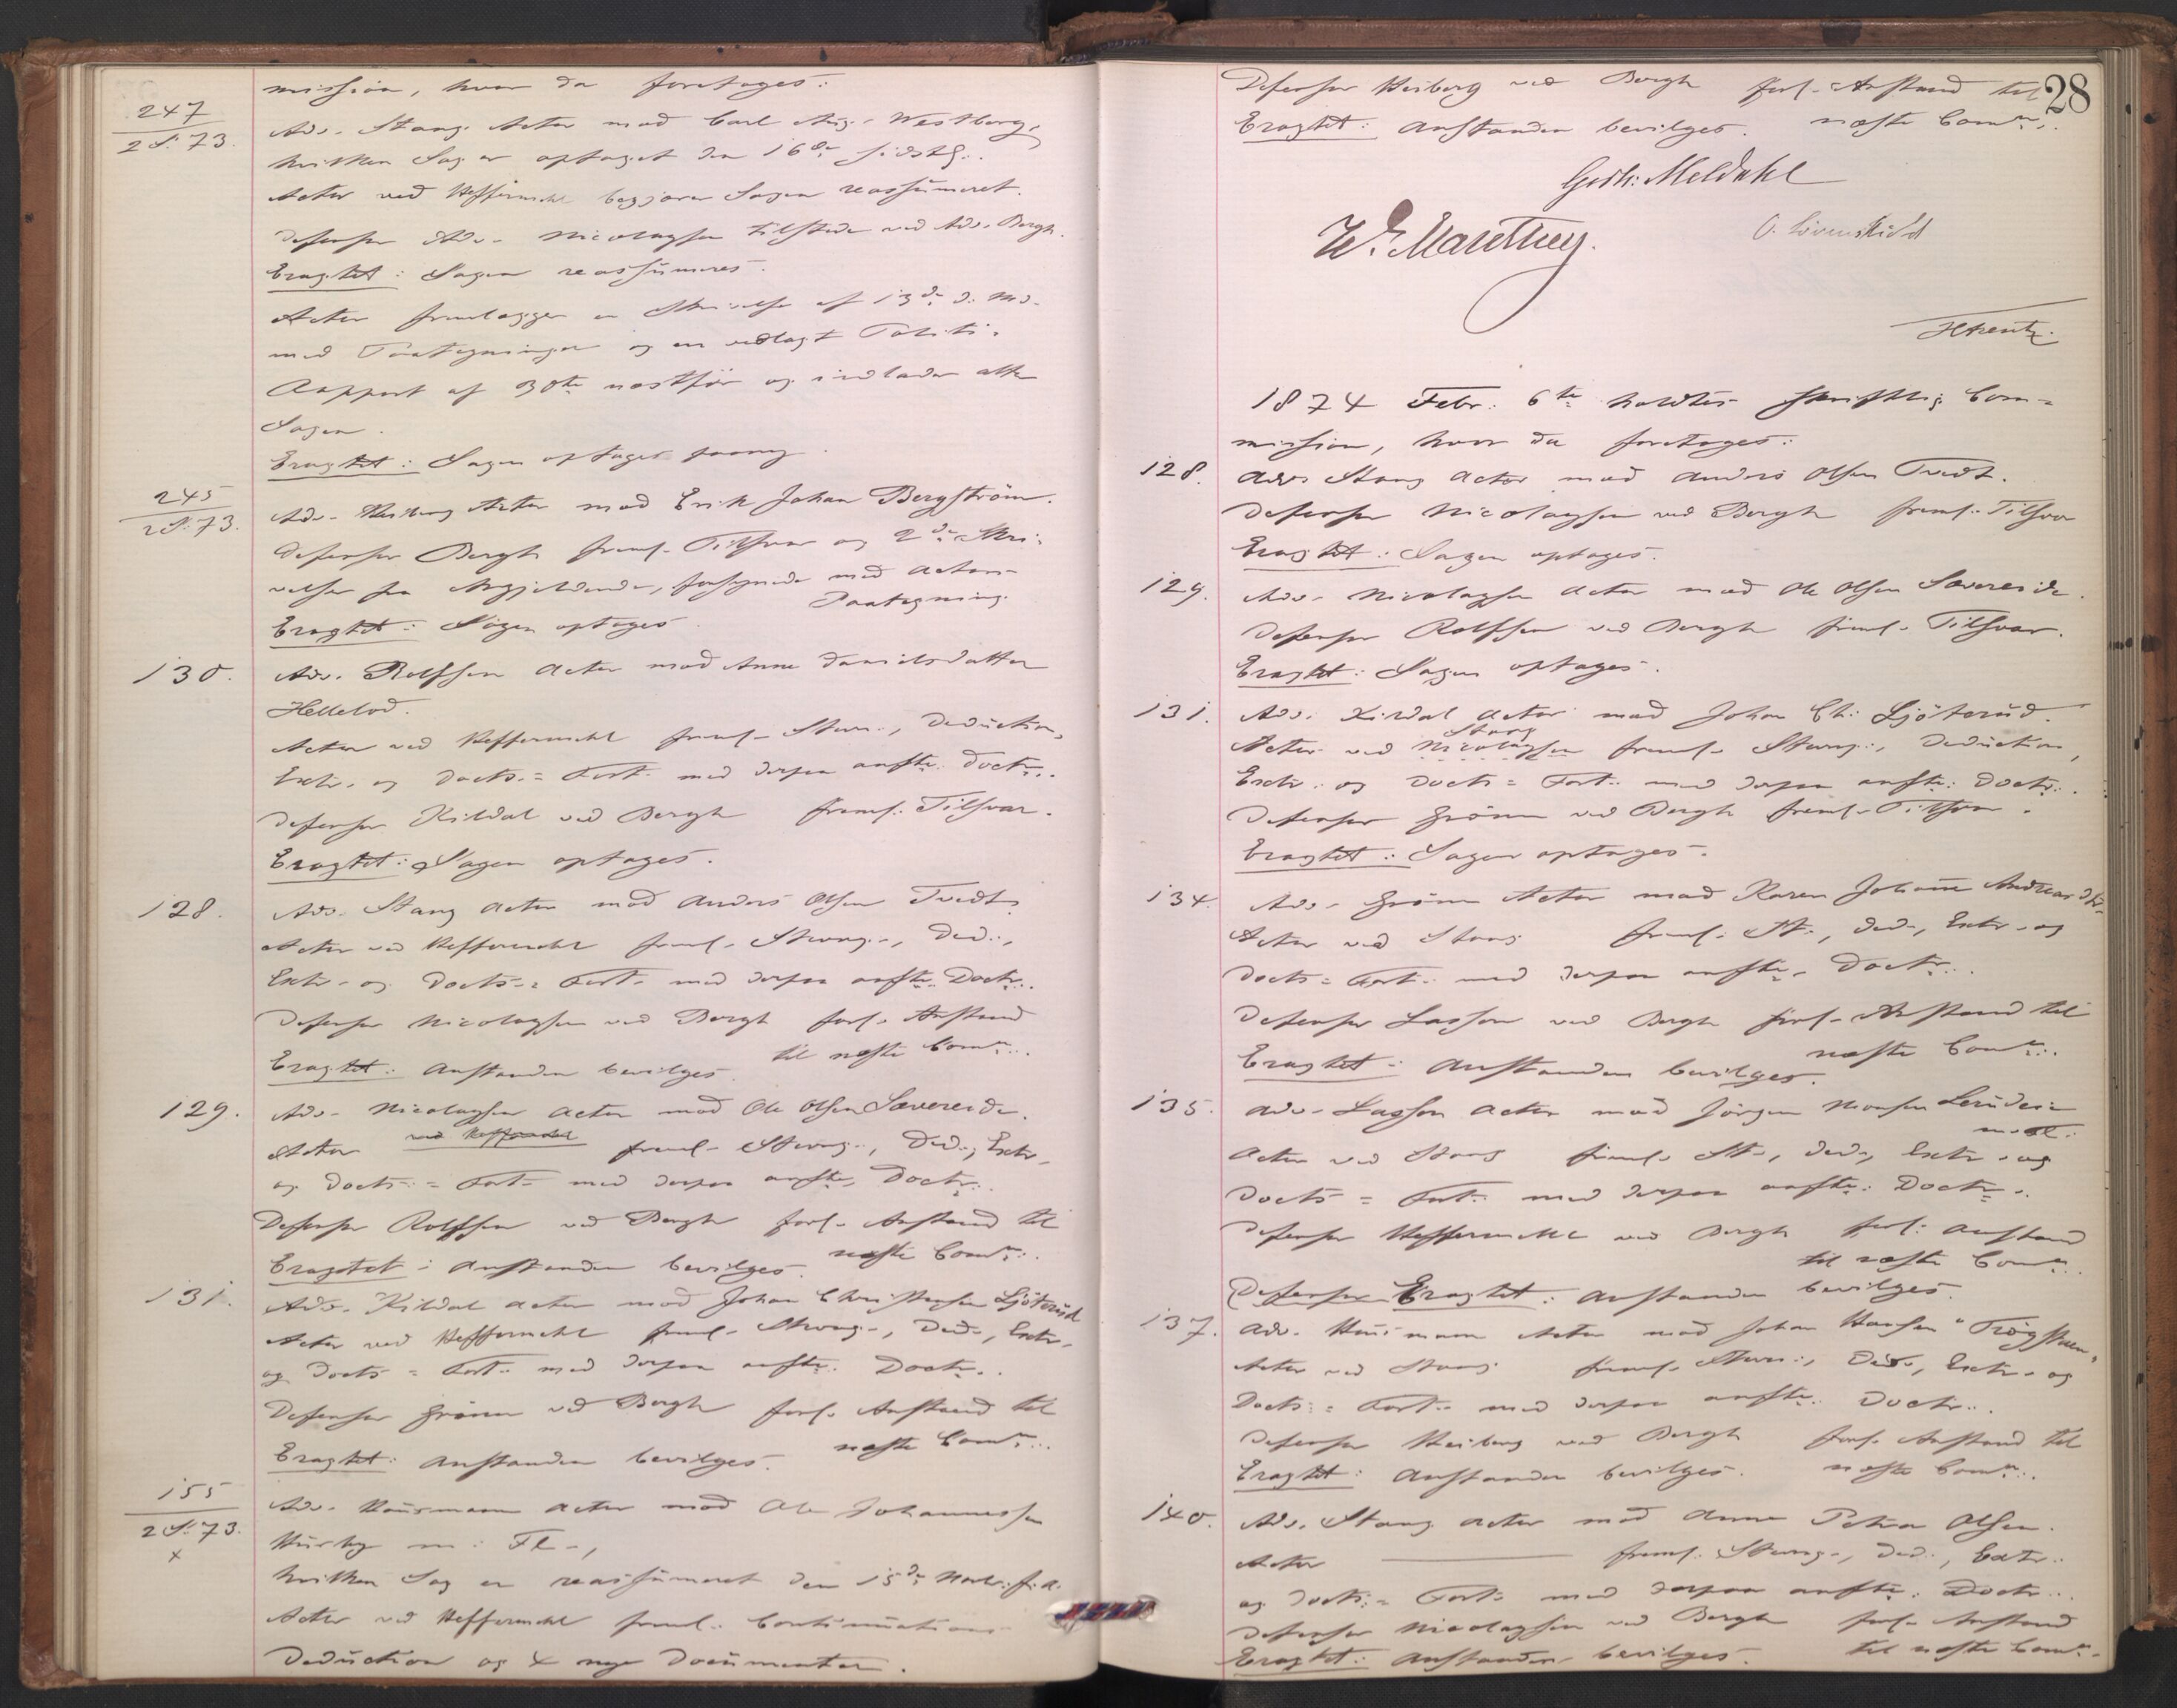 mission, hvor da foretages:
247
2 S. 73.
Adv. Stang Actor mod Carl Aug. Westberg,
hvilken Sag er optaget den 16de sidstl.
Actor ved Heffermehl begjærer Sagen reassumeret.
Defensor Adv. Nicolaysen tilstede ved Adv. Bergh.
Eragtet: Sagen reassumeres.
Actor fremlægger en Skrivelse af 13de d. Md.
med Paategninger og en vedlagt Politi-
Rapport af 30te næstfør og indlader atter
Sagen.
Eragtet: Sagen optages paany.
245
2 S. 73.
Adv. Heiberg Actor mod Erik Johan Bergström.
Defensor Bergh freml. Tilsvar og 2de Skri-
velser fra Angjeldende, forsynede med Actors
Paategning.
Eragtet: Sagen optages.
130.
Adv. Rolfsen Actor mod Anne Danielsdatter
Hellelod.
Actor ved Heffermehl freml. Stevn., Deduction,
Extr. og Docts.= Fort. med derpaa anfte. Doctr..
Defensor Kildal ved Bergh freml. Tilsvar.
Eragtet: Sagen optages.
128.
Adv. Stang Actor mod Anders Olsen Tvedt.
Actor ved Heffermehl freml. Stevng., Ded.,
Extr. og Docts.= Fort. med derpaa anfte. Doctr..
Defensor Nicolaysen ved Bergh forl. Anstand
til næste Comn..
Eragtet: Anstanden bevilges.
129.
Adv. Nicolaysen Actor mod Ole Olsen Sævereide.
Actor ved Heffermehl freml. Stevng., Ded., Extr.
og Docts.= Fort. med derpaa anfte. Doctr..
Defensor Rolfsen ved Bergh forl. Anstand til
næste Comn..
Eragtet: Anstanden bevilges.
131.
Adv. Kildal Actor mod Johan Christensen Ljöterud
Actor ved Heffermehl freml. Stevng., Ded., Extr.
og Docts.= Fort. med derpaa anfte. Doctr..
Defensor Grönn ved Bergh forl. Anstand til
næste Comn..
Eragtet: Anstanden bevilges.
155
2 S. 73.
x
Adv. Hausmann Actor mod Ole Johannessen
m: Fl.,
hvilken Sag er reassumeret den 15de f. A.
Actor ved Heffermehl freml. Continuations
Deduction og 4 nye Documenter.
28
Defensor Heiberg ved Bergh forl. Anstand til
næste Comn..
Eragtet: Anstanden bevilges.
Gerh: Meldahl
O. Lövenskiold
1874 Febr. 6te holdtes skriftlig Com=
mission, hvor da foretages:
128.
Adv. Stang Actor mod Anders Olsen Tvedt.
Defensor Nicolaysen ved Bergh freml. Tilsvar
Eragtet: Sagen optages.
129.
Adv. Nicolaysen Actor mod Ole Olsen Sævereide.
Defensor Rolfsen ved Bergh freml. Tilsvar.
Eragtet: Sagen optages.
131.
Adv. Kildal Actor mod Johan Ch: Ljöterud.
Stang
Actor ved Nicolaysen freml. Stevng., Deduction,
Extr. og Docts.= Fort. med derpaa anfte. Doctr..
Defensor Grönn ved Bergh freml. Tilsvar.
Eragtet: Sagen optages.
134.
Adv. Grönn Actor mod Karen Johanne Andreasdtr.
Actor ved Stang freml. St., Ded., Extr. og
Docts.= Fort. med derpaa anfte. Doctr..
Defensor Lasson ved Bergh forl. Anstand til
næste Comn..
Eragtet: Anstanden bevilges.
135.
Adv. Lasson Actor mod Jörgen
m. Fl.
Actor ved Stang freml. St., Ded., Extr. og
Docts.= Fort. med derpaa anfte. Doctr..
Defensor Heffermehl ved Bergh forl. Anstand
til næste Comn..
Defensor Eragtet: Anstanden bevilges.
137.
Adv. Hausmann Actor mod Johan Hansen
Actor ved Stang freml. Stevn., Ded., Extr. og
Docts.= Fort. med derpaa anfte. Doctr..
Defensor Heiberg ved Bergh forl. Anstand til
næste Comn..
Eragtet: Anstanden bevilges.
140.
Adv. Stang Actor mod Anne Petra Olsen.
Actor ——— freml. Stevng., Ded., Extr.
og Docts.= Fort. med derpaa anfte. Doctr..
Defensor Nicolaysen ved Bergh forl. Anstand
til næste Comn.
Eragtet: Anstanden bevilges.